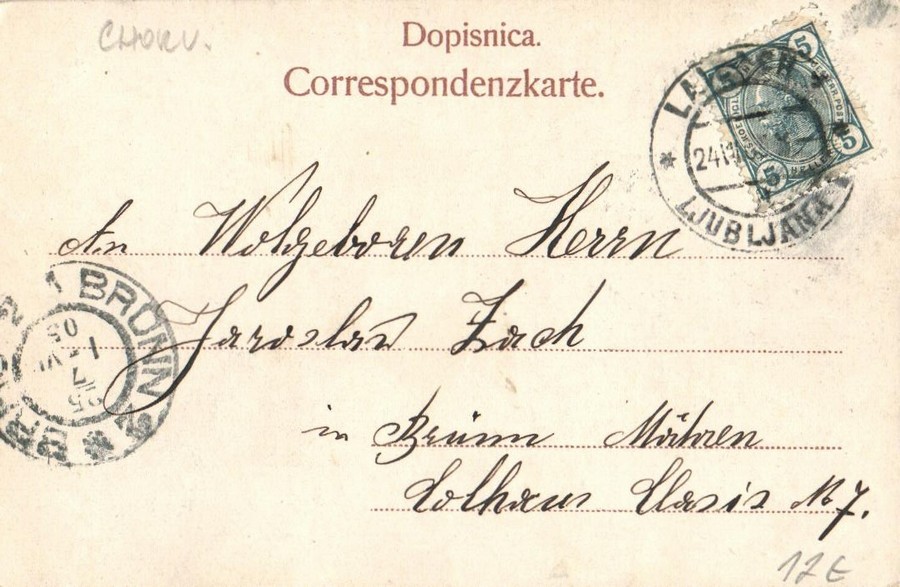 CHORV.
Dopisnica.
Correspondenzkarte.
LAIBACH
24
LJUBLJANA
5 5 5
An Wolgeboren Herrn
Jaroslav Zach
in Brünn Mähren
№ 7.
1 BRÜNN
05
25
12€